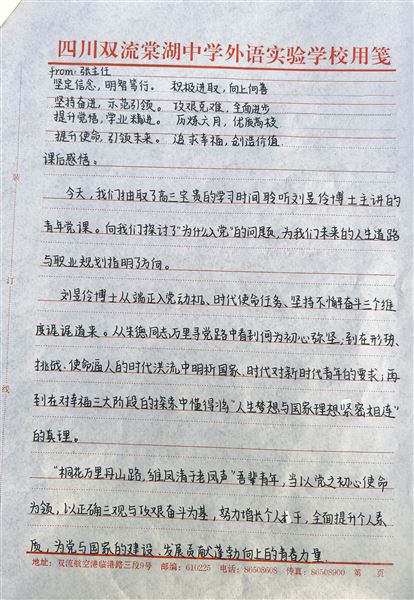 四川双流棠湖中学外语实验学校用笺
from: 张主任
坚定信念，明智笃行。 积极进取，向上向善
坚持奋进，示范引领。 攻艰克难，全面进步
提升觉悟，学业精进。 历炼六月，优质高枝
提升使命，引领未来。 追求幸福，创造价值.
课后感悟：
今天，我们抽取了高三宝贵的学习时间聆听刘昱伶博士主讲的
青年党课。向我们探讨了“为什么入党”的问题，为我们未来的人生道路
与职业规划指明了方向。
装
刘昱伶博士从端正入党动机、时代使命任务、坚持不懈奋斗三个维
订
度谆谆道来。从朱德同志万里寻党路中看到何为初心弥坚，到在形势、
挑战、使命逼人的时代洪流中明析国家、时代对新时代青年的要求；再
线
到在对幸福三大阶段的探索中懂得将“人生梦想与国家理想紧密相连”
的真理。
“桐花万里丹山路，雏凤清于老凤声”吾辈青年，当以党之初心使命
为领，以正确三观与攻艰奋斗为基，努力增长个人才干，全面提升个人素
质，为党与国家的建设、发展贡献蓬勃向上的青春力量.
地址：双流航空港临港路三段9号 邮编：610225 电话：86508608 传真：86508900 第 页